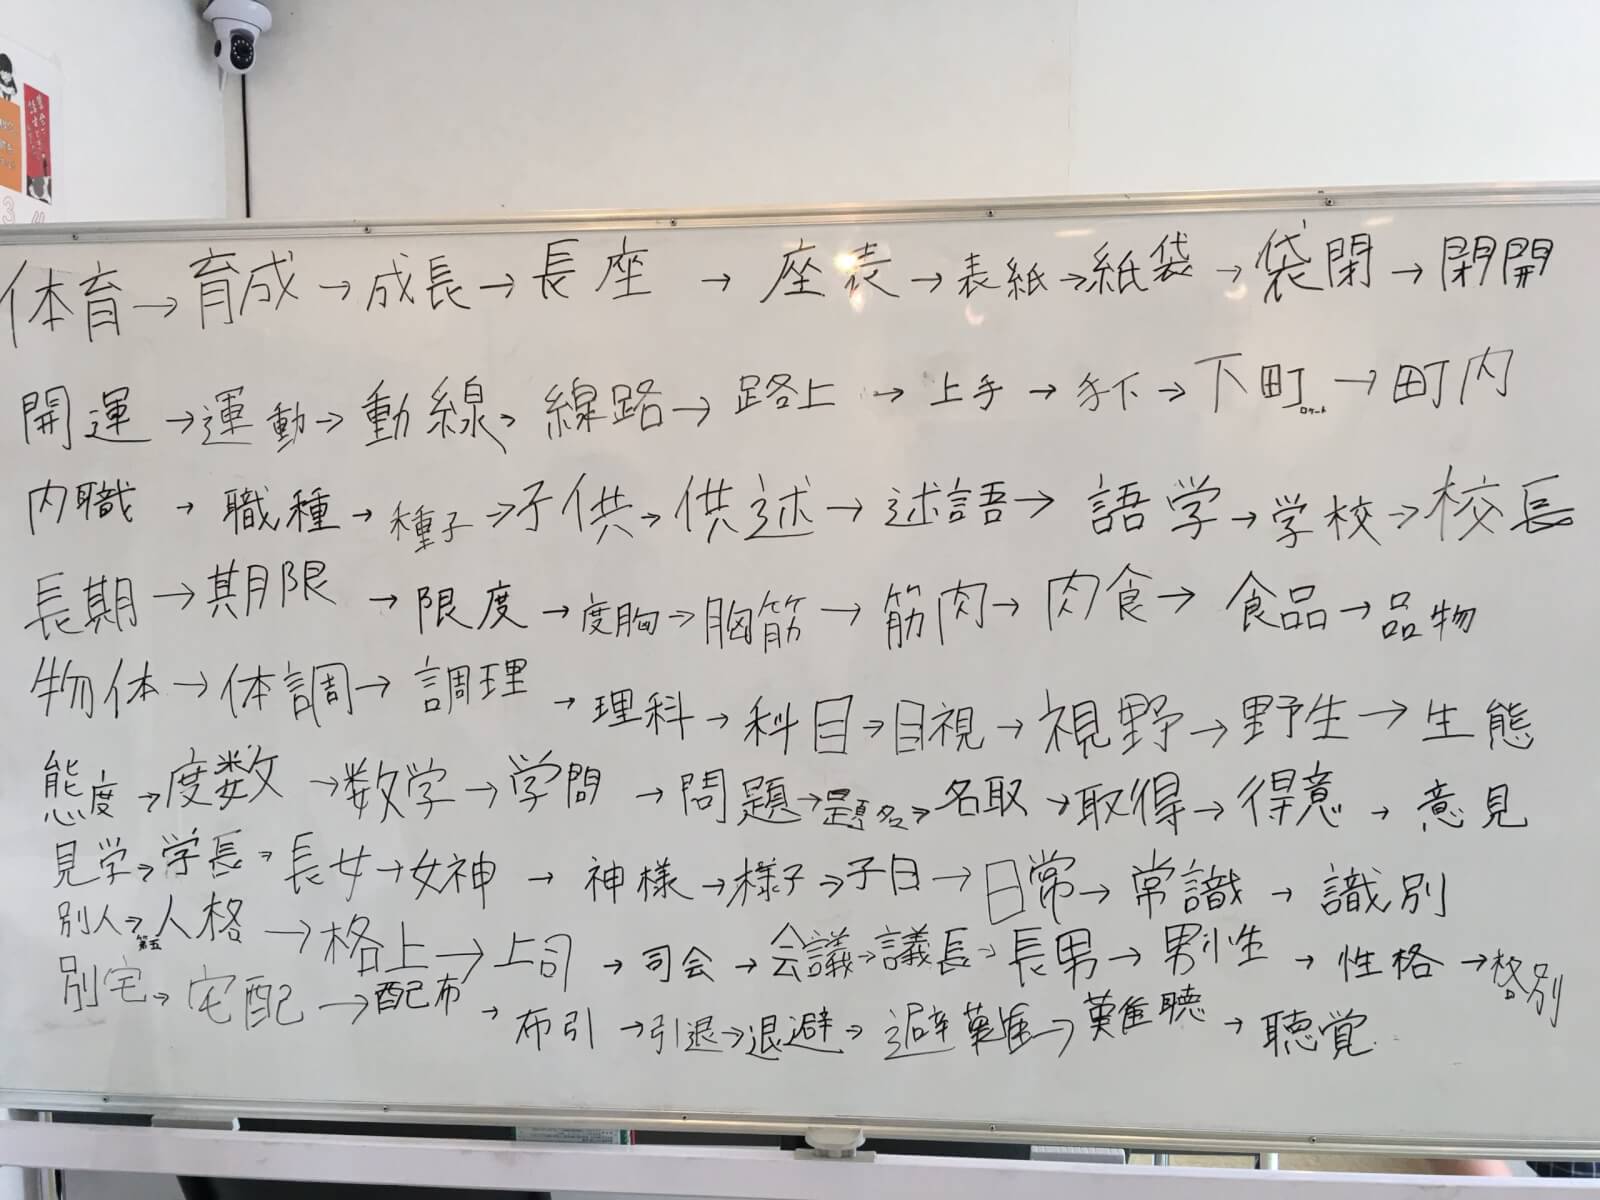 体育→育成→成長→長座→座表→表紙→紙袋→袋閉→閉開
開運→運動→動線→線路→路上→上手→手下→下町→町内
ロケート
内職→職種→種子→子供→供述→述語→語学→学校→校長
長期→期限→限度→度胸→胸筋→筋肉→肉食→食品→品物
物体→体調→調理→理科→科目→目視→視野→野生→生態
態度→度数→数学→学問→問題→題名→名取→取得→得意→意見
見学→学長→長女→女神→神様→様子→子日→日常→常識→識別
別人→人格→格上→上司→司会→会議→議長→長男→男性→性格→格別
第五
別宅→宅配→配布→布引→引退→退避→避難→難聴→聴覚